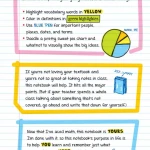 • Highlight vocabulary words in YELLOW.
• Color in definitions in green highlighter.
• Use BLUE PEN for important people, places, dates, and terms.
• Doodle a pretty sweet pie chart and whatnot to visually show the big ideas.
If you're not loving your textbook and you're not so great at taking notes in class, this notebook will help. It hits all the major points. But if your teacher spends a whole class talking about something that's not covered, go ahead and write that down for yourself.
Now that I've aced math, this notebook is YOURS.
I'm done with it, so this notebook's purpose in life is to help YOU learn and remember just what